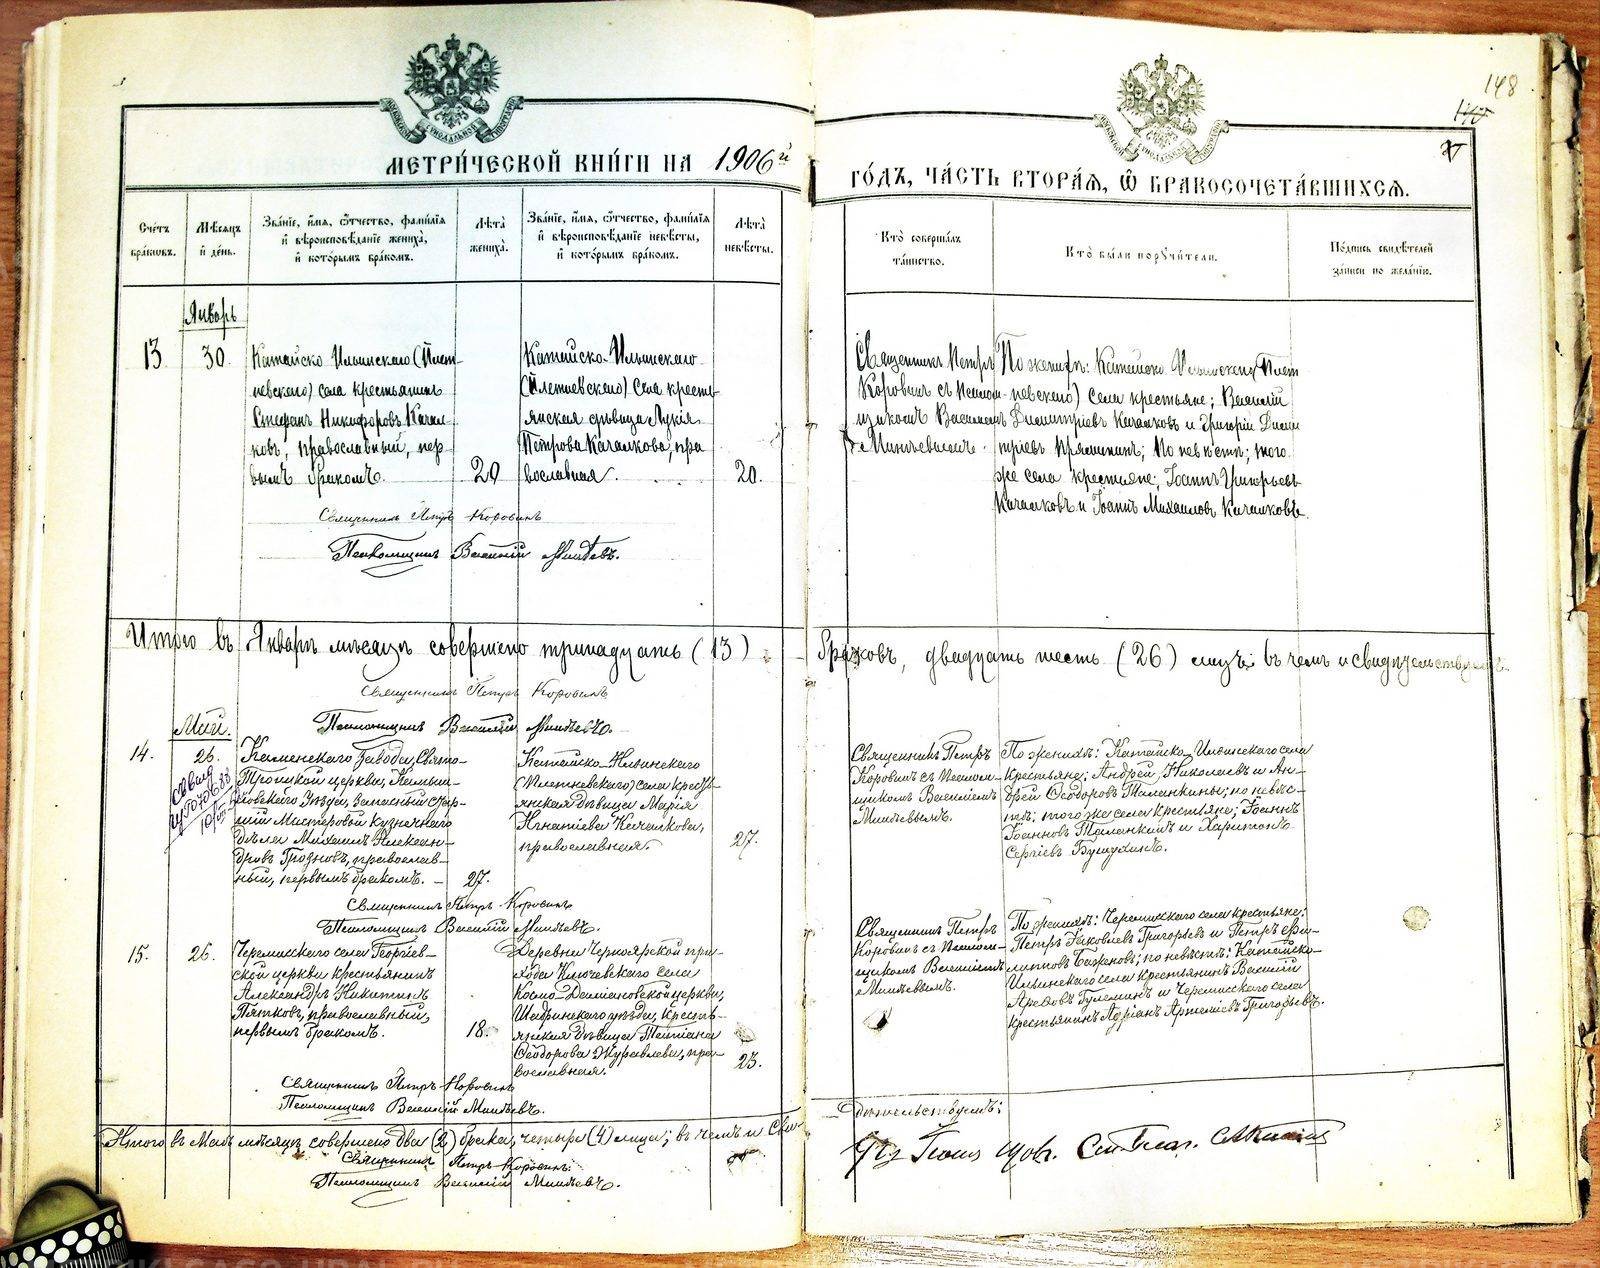 148
МЕТРИ́ЧЕСКОЙ КНИ́ГИ НА 1906й
ГО́ДЪ, ЧА́СТЬ ВТОРА́Я, Ѡ БРАКОСОЧЕТА́ВШИХСЯ.
Сче́тъ бра́ковъ.
Мѣ́сяцъ и де́нь.
Зва́нїе, и́мя, ѻ́тчество, фами́лїя и҆ вѣроисповѣ́данїе жениха̀, и҆ кото́рымъ бра́комъ.
Лѣ́та жениха̀.
Зва́нїе, и́мя, ѻ́тчество, фами́лїя и҆ вѣроисповѣ́данїе невѣ́сты, и҆ кото́рымъ бра́комъ.
Лѣ́та невѣ́сты.
Кто̀ соверша́лъ та́инство.
Кто̀ бы́ли порꙋчи́тели.
По́дпись свидѣ́телей за́писи по жела́нїю.
Январь
13 30.
Катайско Ильинскаго (Плет-
невскаго) села крестьянинъ
Стефанъ Никифоровъ Качал-
ковъ, православный, пер-
вымъ бракомъ.
20
Катайско-Ильинскаго
(Плетневскаго) села кресть-
янская дѣвица Лукія
Петрова Качалкова, пра
вославная.
20.
Священникъ Петръ
Коровинъ съ псалом-
щикомъ Василіемъ
Минѣевымъ
По женихѣ: Катайско Ильинскаго (Плет
невскаго) села крестьяне; Василій
Димитріевъ Качалковъ и Григорій Дими
тріевъ Прямикинъ; По невѣстѣ; того
же села крестьяне; Іоаннъ Григорьевъ
Качалковъ и Іоаннъ Михаиловъ Качалковы.
Священникъ Петръ Коровинъ
Псаломщикъ Василій Минѣевъ.
Итого въ Январѣ мѣсяцѣ совершено тринадцать (13)
браковъ, двадцать шесть (26) лицъ; въ чемъ и свидѣтельствуемъ
Священникъ Петръ Коровинъ
Псаломщикъ Василій Минѣевъ.
Май.
14. 26.
Каменскаго завода, Свято-
Троицкой церкви, Камыш-
ловскаго уѣзда, запасный стар-
шій Мастеровой кузнечнаго
дѣла Михаилъ Алексан-
дровъ Грозновъ, православ-
ный, первымъ бракомъ.
27.
Катайско-Ильинскаго
(Плетневскаго) села кресть-
янская дѣвица Марія
Игнатіева Качалкова,
православная.
27.
Священникъ Петръ
Коровинъ съ псалом-
щикомъ Василіемъ
Минѣевымъ.
По женихѣ: Катайско-Ильинскаго села
крестьяне: Андрей Николаевъ и Ан-
дрей Ѳеодоровъ Таланкины; по невѣс-
тѣ: того же села крестьяне; Іоаннъ
Іоанновъ Таланкинъ и Харитонъ
Сергіевъ Бушухинъ.
Священникъ Петръ Коровинъ
Псаломщикъ Василій Минѣевъ.
15. 26.
Черемисскаго села Георгіев-
ской церкви крестьянинъ
Александръ Никитинъ
Пятковъ, православный,
первымъ бракомъ.
18.
Деревни Черноярской при-
хода Ключевскаго села
Космо-Даміановской церкви,
Шадринскаго уѣзда, кресть-
янская дѣвица Татіана
Ѳеодорова Журавлева, пра-
вославная.
23.
Священникъ Петръ
Коровинъ съ псалом-
щикомъ Василіемъ
Минѣевымъ.
По женихѣ: Черемисскаго села крестьяне:
Петръ Іаковлевъ Григорьевъ и Петръ Фи-
липповъ Бажановъ; по невѣстѣ: Катайско-
Ильинскаго села крестьянинъ Василій
и Черемисскаго села
крестьянинъ Адріанъ Артеміевъ Григорьевъ.
Священникъ Петръ Коровинъ
Псаломщикъ Василій Минѣевъ.
Итого въ Маѣ мѣсяцѣ совершено два (2) брака, четыре (4) лица; въ чемъ и сви-
дѣтельствуемъ:
Священникъ Петръ Коровинъ.
Псаломщикъ Василій Минѣевъ.